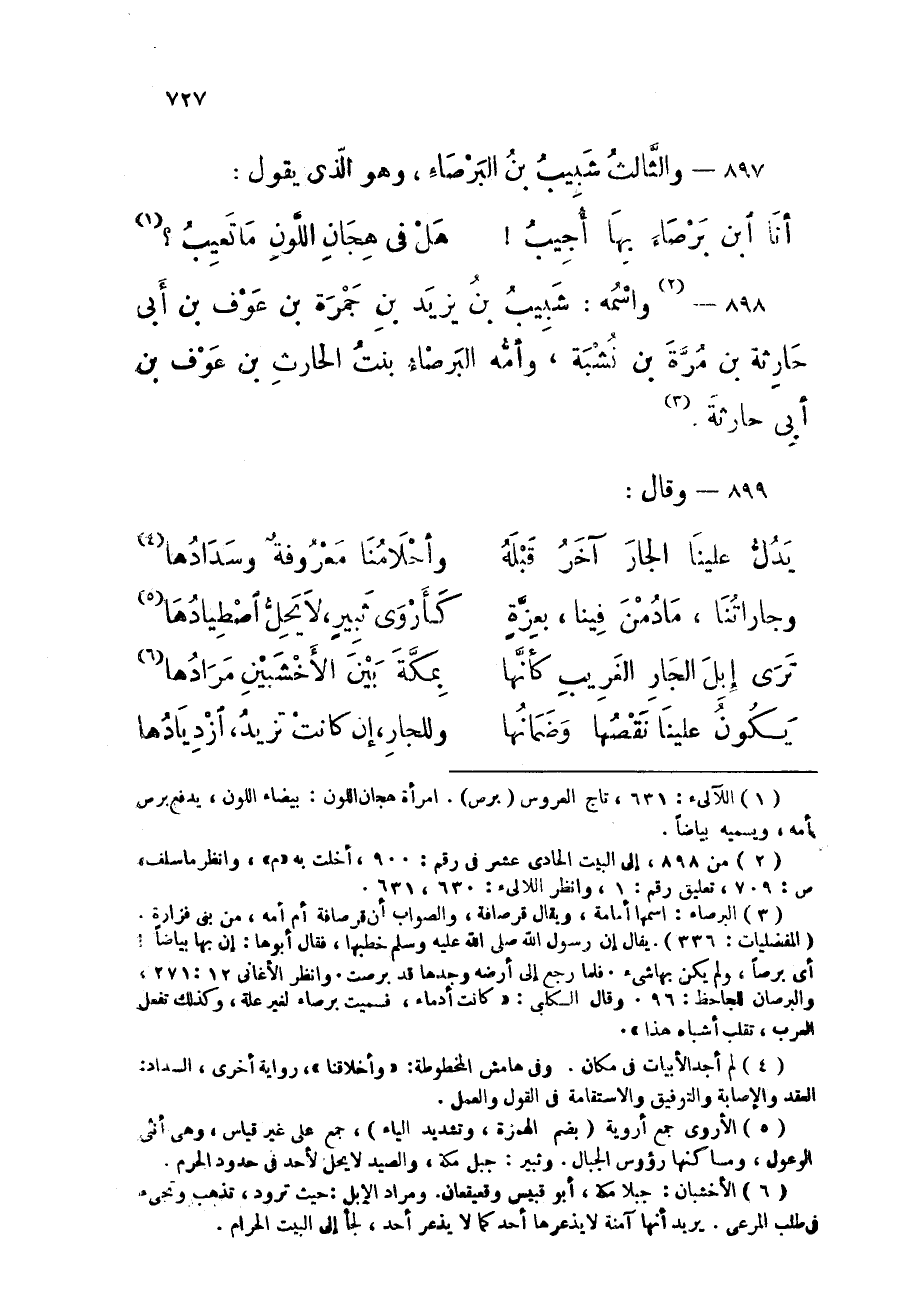 ٧٢٧
٨٩٧ — والثَّالثُ شَبِيبُ بنُ البَرْصَاءِ ، وهو الّذى يقول :
أنَا ٱبن بَرْصَاءَ بِهَا أُجِيبُ ! هَلْ فى هِجَانِ اللَّونِ مَا تَعِيبُ ؟(١)
٨٩٨ — (٢) واسْمُه : شَبِيبُ بنُ يزيَد بنِ جَمْرَة بن عَوْف بن أَبى
حَارِثة بن مُرَّةَ بن نُشْبَة ، وأمُّه البَرصَاءِ بنتُ الحارثِ بن عَوْف بن
أبِى حارثةَ .(٣)
٨٩٩ — وقال :
يَدُلُّ علينَا الجارَ آخَرُ قَبْلَهُ وأحْلَامُنَا مَعْرُوفةٌ وسَدَادُها(٤)
وجاراتُنَا ، مَادُمْنَ فِينا ، بعِزَّةٍ كَأَرْوَى ثَبِيرٍ، لاَيَحِلُّ ٱصْطِيادُهَا(٥)
تَرَى إِبِلَ الجارِ الغَرِيبِ كأنَّها بِمَكَّةَ بَيْنَ الأَخْشَبَيْنِ مَرَادُها(٦)
يَكُونُ علينَا نَقْصُها وَضَمَانُها وللجارِ، إن كانتْ تزيدُ، ٱزْدِيَادُها
( ١ ) اللآلىء : ٦٣١ ، تاج العروس ( برص ) . امرأة هجان اللون : بيضاء اللون ، يدفع برص
أمه ، ويسميه بياضاً .
( ٢ ) من ٨٩٨ ، إلى البيت الحادى عشر فى رقم : ٩٠٠ ، أخلت به «م» ، وانظر ماسلف،
ص : ٧٠٩ ، تعليق رقم : ١ ، وانظر اللالىء : ٦٣٠ ، ٦٣١ .
( ٣ ) البرصاء : اسمها أمامة ، ويقال قرصافة ، والصواب أن قرصافة أم أمه ، من بنى فزارة .
( المفضليات : ٣٣٦ ) . يقال إن رسول الله صلى الله عليه وسلم خطبها ، فقال أبوها : إن بها بياضاً !
أى برصاً ، ولم يكن بها شىء . فلما رجع إلى أرضه وجدها قد برصت . وانظر الأغانى ١٢ : ٢٧١ ،
والبرصان للجاحظ : ٩٦ . وقال الكلبى : « كانت أدماء ، فسميت برصاء لغير علة ، وكذلك تفعل
العرب ، تقلب أشباه هذا » .
( ٤ ) لم أجد الأبيات فى مكان . وفى هامش المخطوطة : « وأخلاقنا »، رواية أخرى ، السداد:
العقد والإصابة والتوفيق والاستقامة فى القول والعمل .
( ٥ ) الأروى جمع أروية ( بضم الهمزة ، وتشديد الياء ) ، جمع على غير قياس ، وهى أنثى
الوعول ، ومساكنها رؤوس الجبال . وثبير : جبل مكة ، والصيد لا يحل لأحد فى حدود الحرم .
( ٦ ) الأخشبان : جبلا مكة ، أبو قبيس وقعيقعان. ومراد الإبل : حيث ترود ، تذهب وتجىء
فى طلب المرعى . يريد أنها آمنة لا يذعرها أحد كما لا يذعر أحد ، لجأ إلى البيت الحرام .